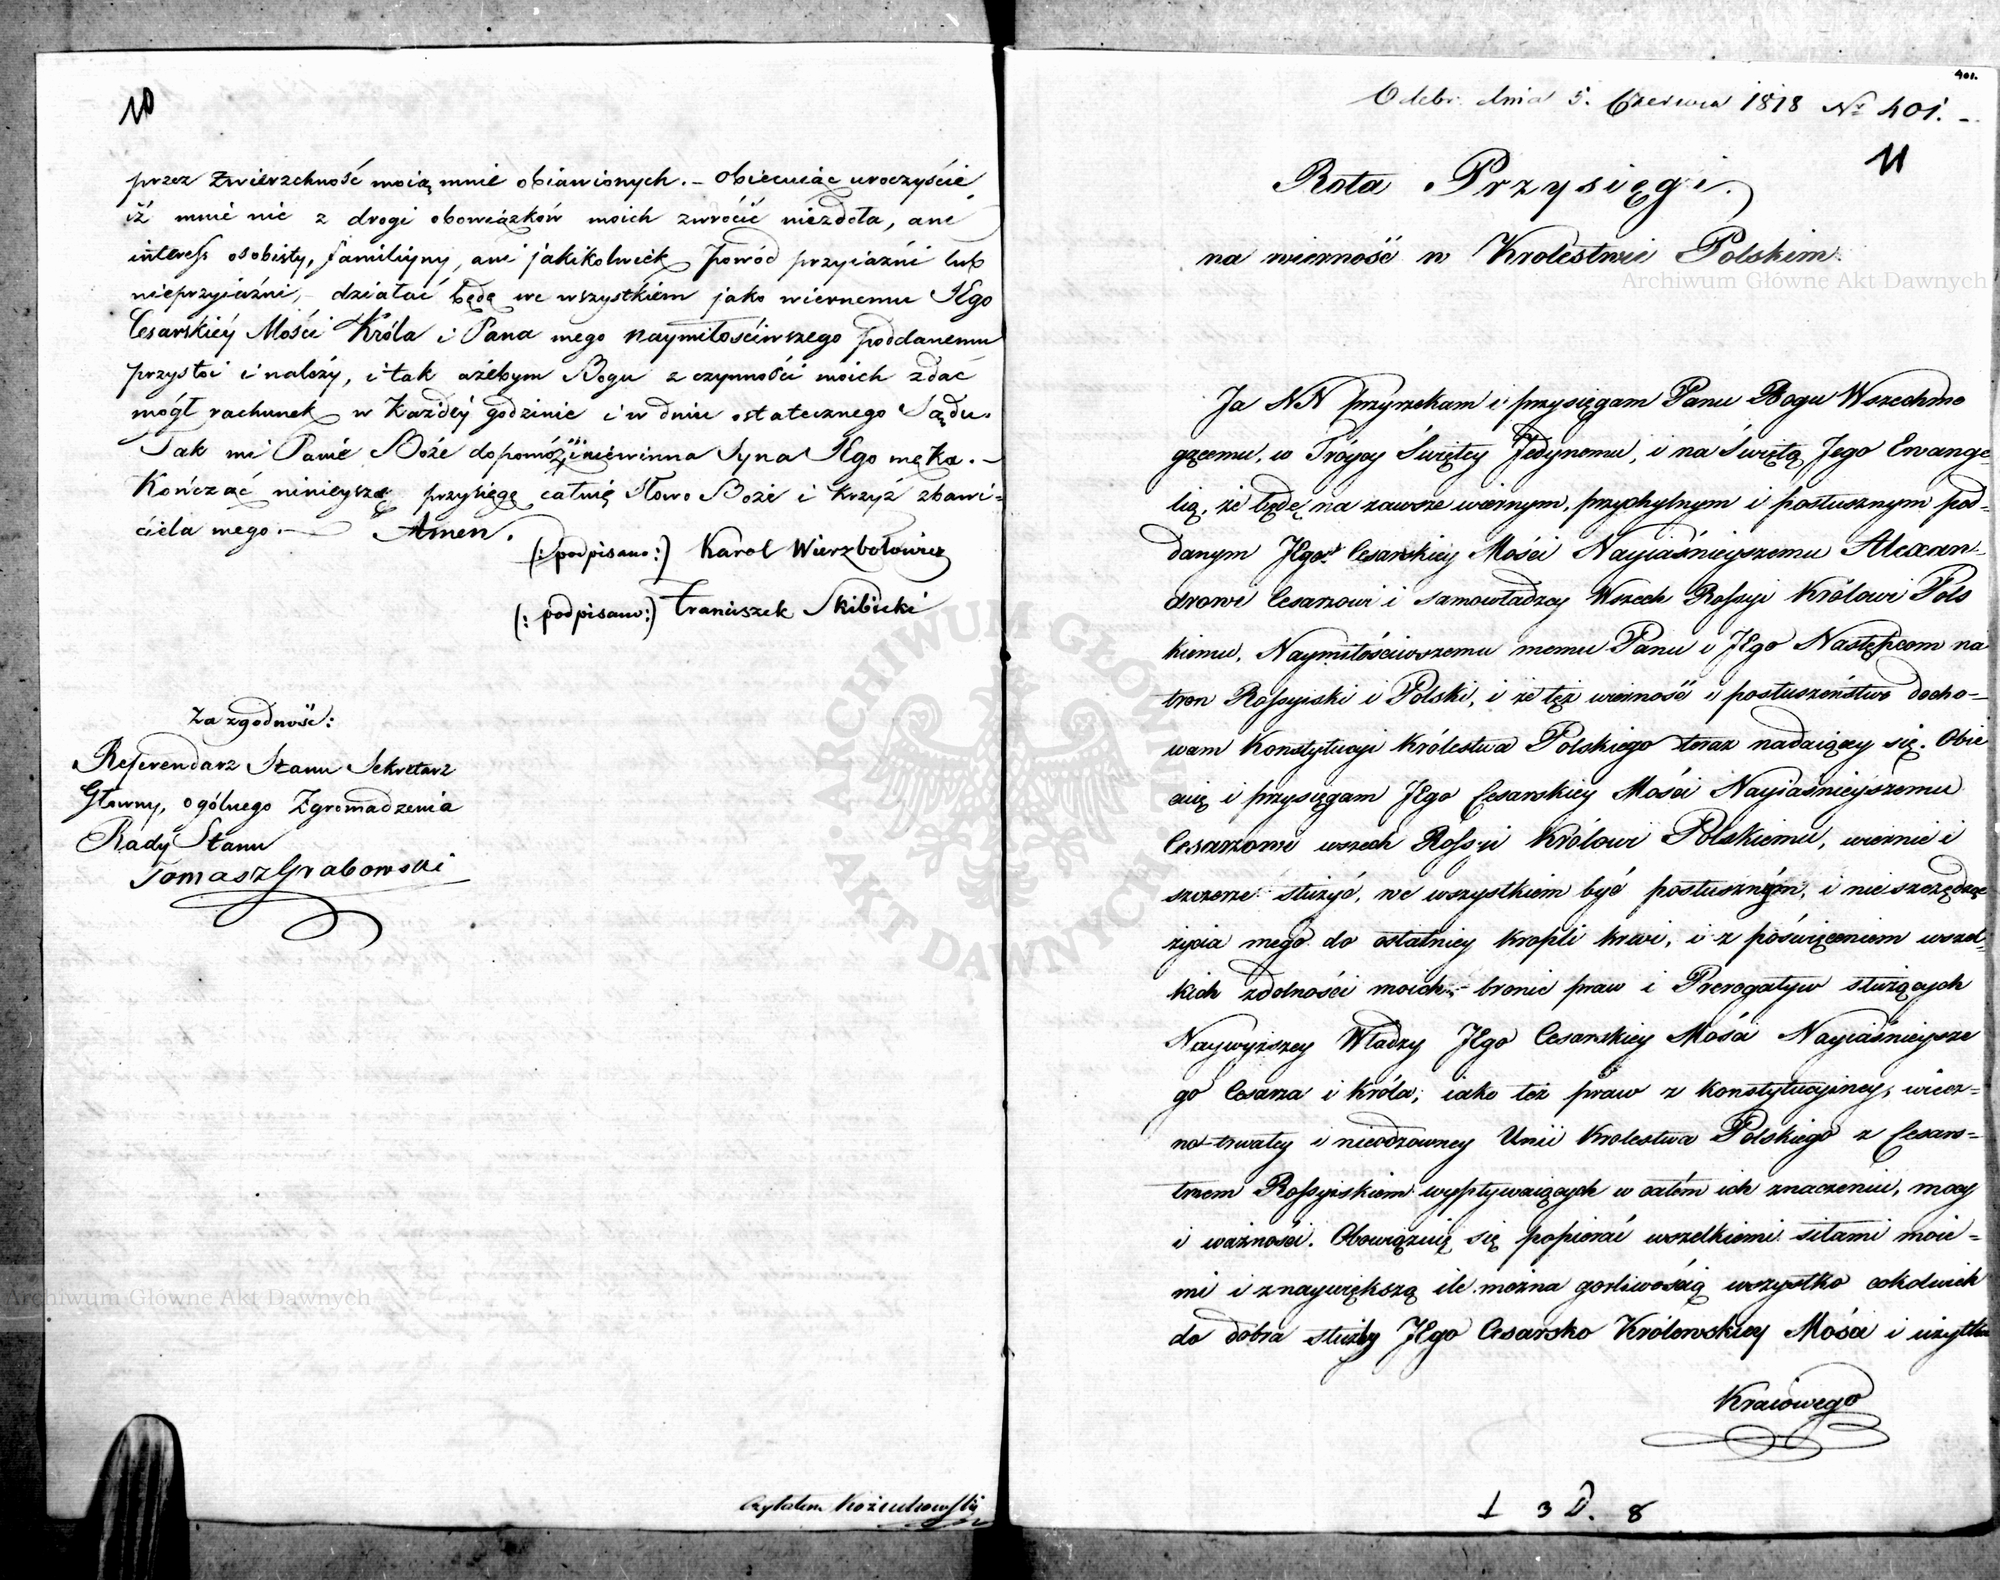 10
przez Zwierzchność moią mnie obiawionych. – Obiecuiąc uroczyście
iż mnie nic z drogi obowiązków moich zwrócić niezdoła, ani
interess osobisty, familiyny, ani jakikolwiek powód przyiaźni lub
nieprzyiaźni, – działać będę we wszystkiem jako wiernemu JEgo
Cesarskiéy Mości Króla i Pana mego Naymiłościwszego poddanemu
przystoi i należy, i tak ażebym Bogu z czynności moich zdać
mógł rachunek w każdéy godzinie i w dniu ostatecznego Sądu.
Tak mi Panie Boże dopomóż i niewinna Syna JEgo męka. –
Kończąc ninieyszą przysięgę całuię Słowo Boże i krzyż zbawi-
ciela mego. – Amen.
(: podpisano :) Karol Wierzbołowicz
(: podpisano :) Franciszek Skibicki
Za zgodność:
Referendarz Stanu Sekretarz
Główny, ogólnego Zgromadzenia
Rady Stanu
Tomasz Grabowski
Czytałem Kożuchowski
401.
Odebr. dnia 5. Czerwca 1818 Nr 401. –
11
Rota Przysięgi.
na wierność w Krolestwie Polskim.
Ja NN przyrzekam i przysięgam Panu Bogu Wszechmo
gącemu, w Tróycy Świętey Jedynemu, i na Świętą Jego Ewange-
lią, że będę na zawsze wiernym, przychylnym i posłusznym pod-
danym JEgo Cesarskiey Mości Nayiaśnieyszemu Alexan-
drowi Cesarzowi i Samowładzcy Wszech Rossyi Królowi Pols
kiemu, Naymiłościwszemu memu Panu i JEgo Następcom na
tron Rossyiski i Polski, i że tęż wierność i posłuszeństwo docho-
wam Konstytucyi Królestwa Polskiego teraz nadaiącey się. Obie
cuię i przysięgam JEgo Cesarskiey Mości Nayiaśnieyszemu
Cesarzowi wszech Rossyi Królowi Polskiemu, wiernie i
szczerze służyć, we wszystkiem być posłusznym, i nieszczędząc
życia mego do ostatniey kropli krwi, i z poświęceniem wszel-
kich zdolności moich – bronić praw i Prerogatyw służących
Naywyższey Władzy JEgo Cesarskiey Mości Nayiaśnieysze
go Cesarza i Króla, iako też praw z Konstytucyiney, wiecz-
no-trwałey i nieodzowney Unii Krolestwa Polskiego z Cesars-
twem Rossyiskiem wypływaiących w całém ich znaczeniu, mocy
i ważności. Obowiązuię się popierać wszelkiemi siłami moie-
mi i z naywiększą ile można gorliwością wszystko cokolwiek
do dobra służby JEgo Cesarsko Królewskiey Mości i użytku
Kraiowego
1 3 D. 8
Archiwum Główne Akt Dawnych
Archiwum Główne Akt Dawnych
ARCHIWUM GŁÓWNE AKT DAWNYCH